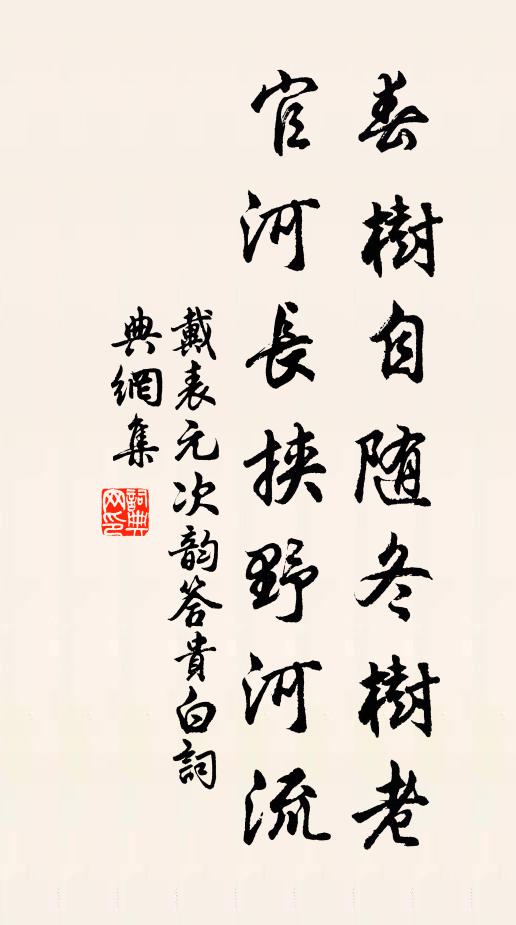 春樹自随冬樹老
官河長挾野河流
戴表元次韵答貴白詞
典網集
詞典网印